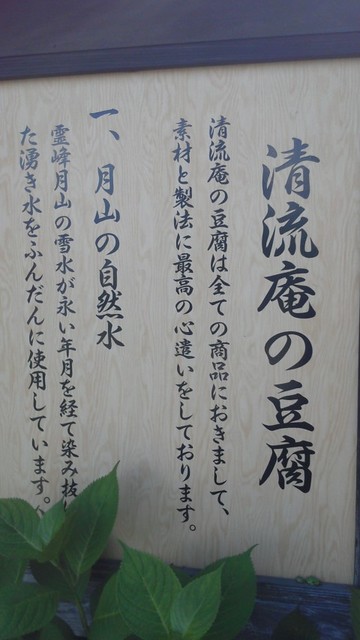 清流庵の豆腐
清流庵の豆腐は全ての商品におきまして、
素材と製法に最高の心遣いをしております。
一、月山の自然水
霊峰月山の雪水が永い年月を経て染み抜い
た湧き水をふんだんに使用しています。